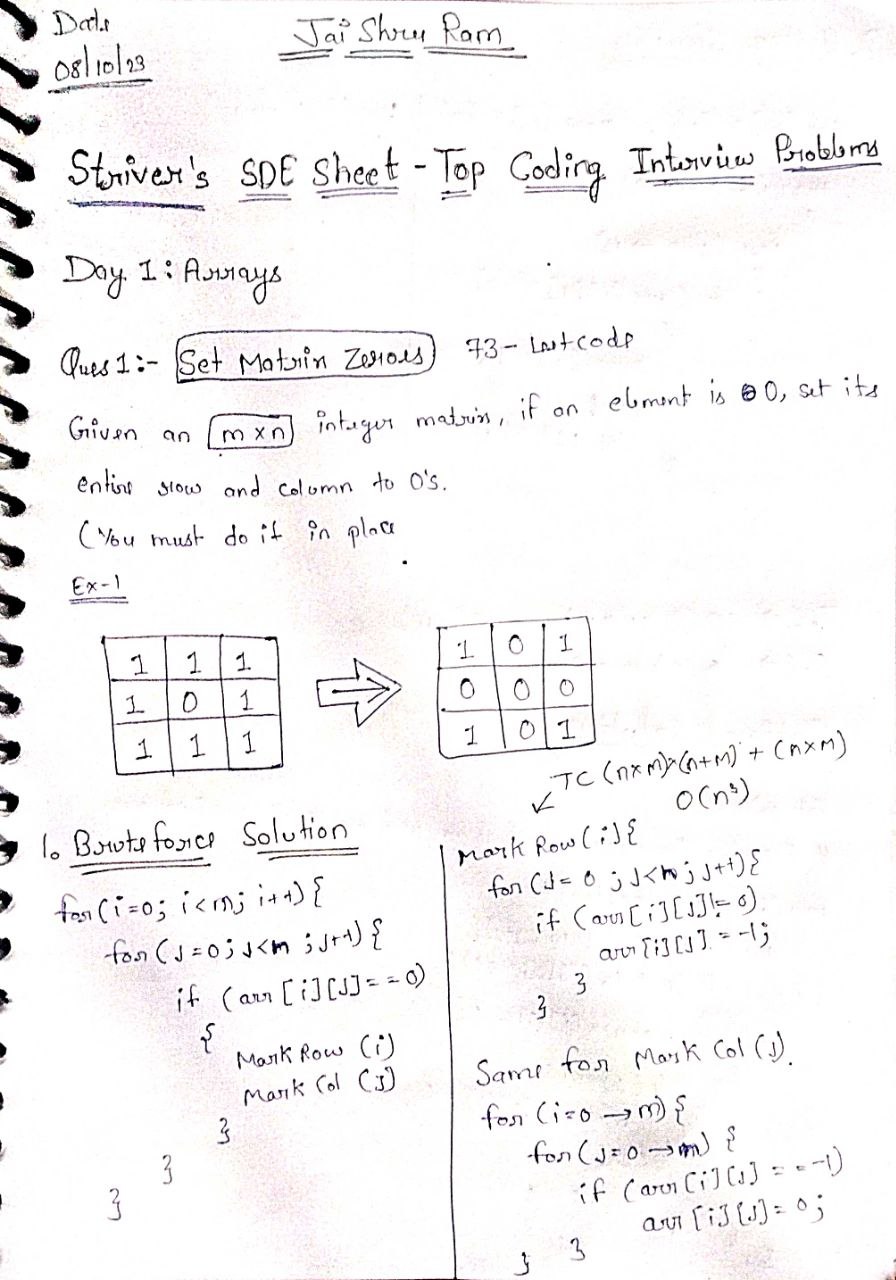 Date
08/10/23
Jai Shree Ram
Striver's SDE Sheet - Top Coding Interview Problems
Day 1 : Arrays
Ques 1 :- Set Matrix Zeroes 73 - Leetcode
Given an m x n integer matrix, if an element is 0, set its
entire row and column to 0's.
(You must do it in place
Ex-1
1 1 1
1 0 1
1 1 1
1 0 1
0 0 0
1 0 1
TC (n x m) x (n+m) + (n x m)
O(n³)
1. Brute force Solution
for (i=0; i<m; i++) {
for (J=0; J<m; J++) {
if (arr [i][J] == 0)
{
Mark Row (i)
Mark Col (J)
}
}
}
Mark Row (i) {
for (J= 0 ; J<n; J++) {
if (arr[i][J] != 0)
arr [i][J] = -1;
}
}
Same for Mark Col (J).
for (i=0 → m) {
for (J=0 → m) {
if (arr[i][J] == -1)
arr [i][J] = 0;
}
}